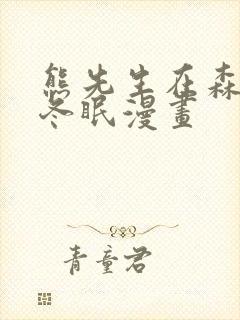 熊先生在森
冬眠漫畫
青童君